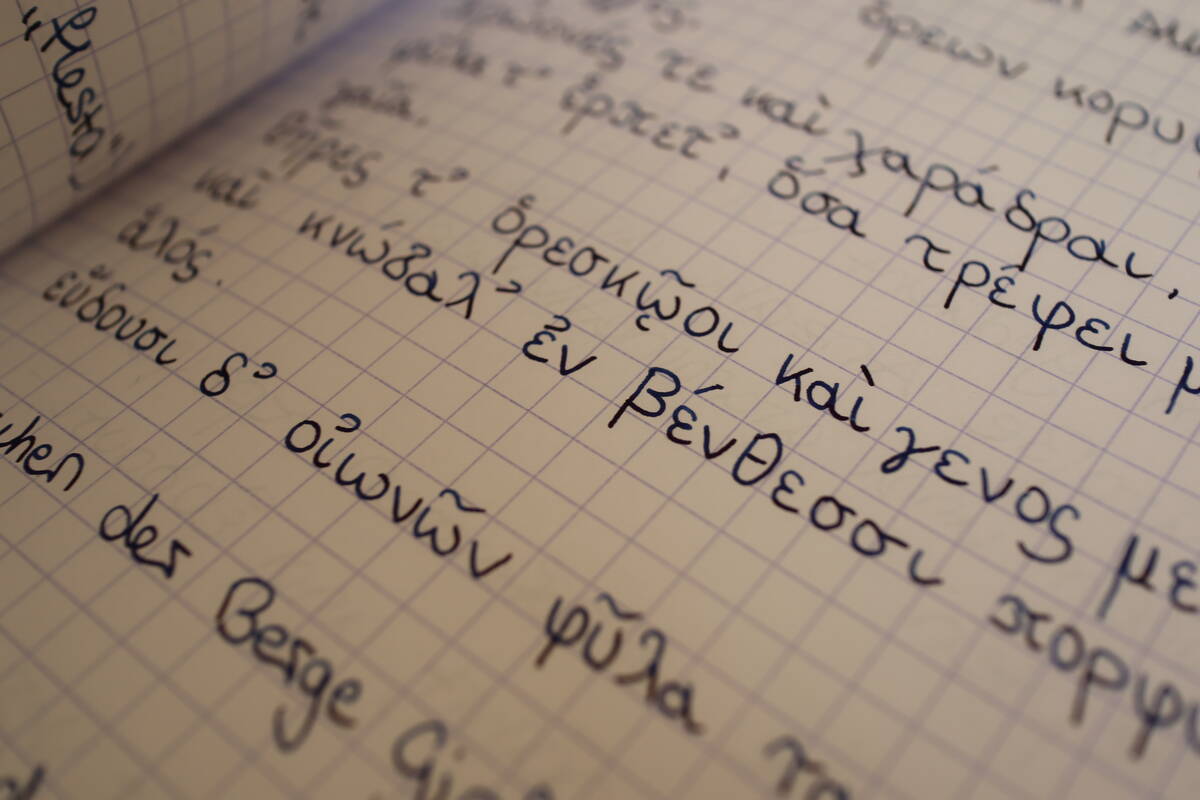 ὄρεων κορυ
πρώονές τε καὶ χαράδραι,
φῦλα τ' ἑρπετ', ὅσα τρέφει μ
γαῖα.
θῆρες τ' ὀρεσκῷοι καὶ γενος με
καὶ κνώδαλ' ἐν βένθεσσι πορφυ
ἁλός.
εὕδουσι δ' οἰωνῶν φῦλα τα
chen der Berge